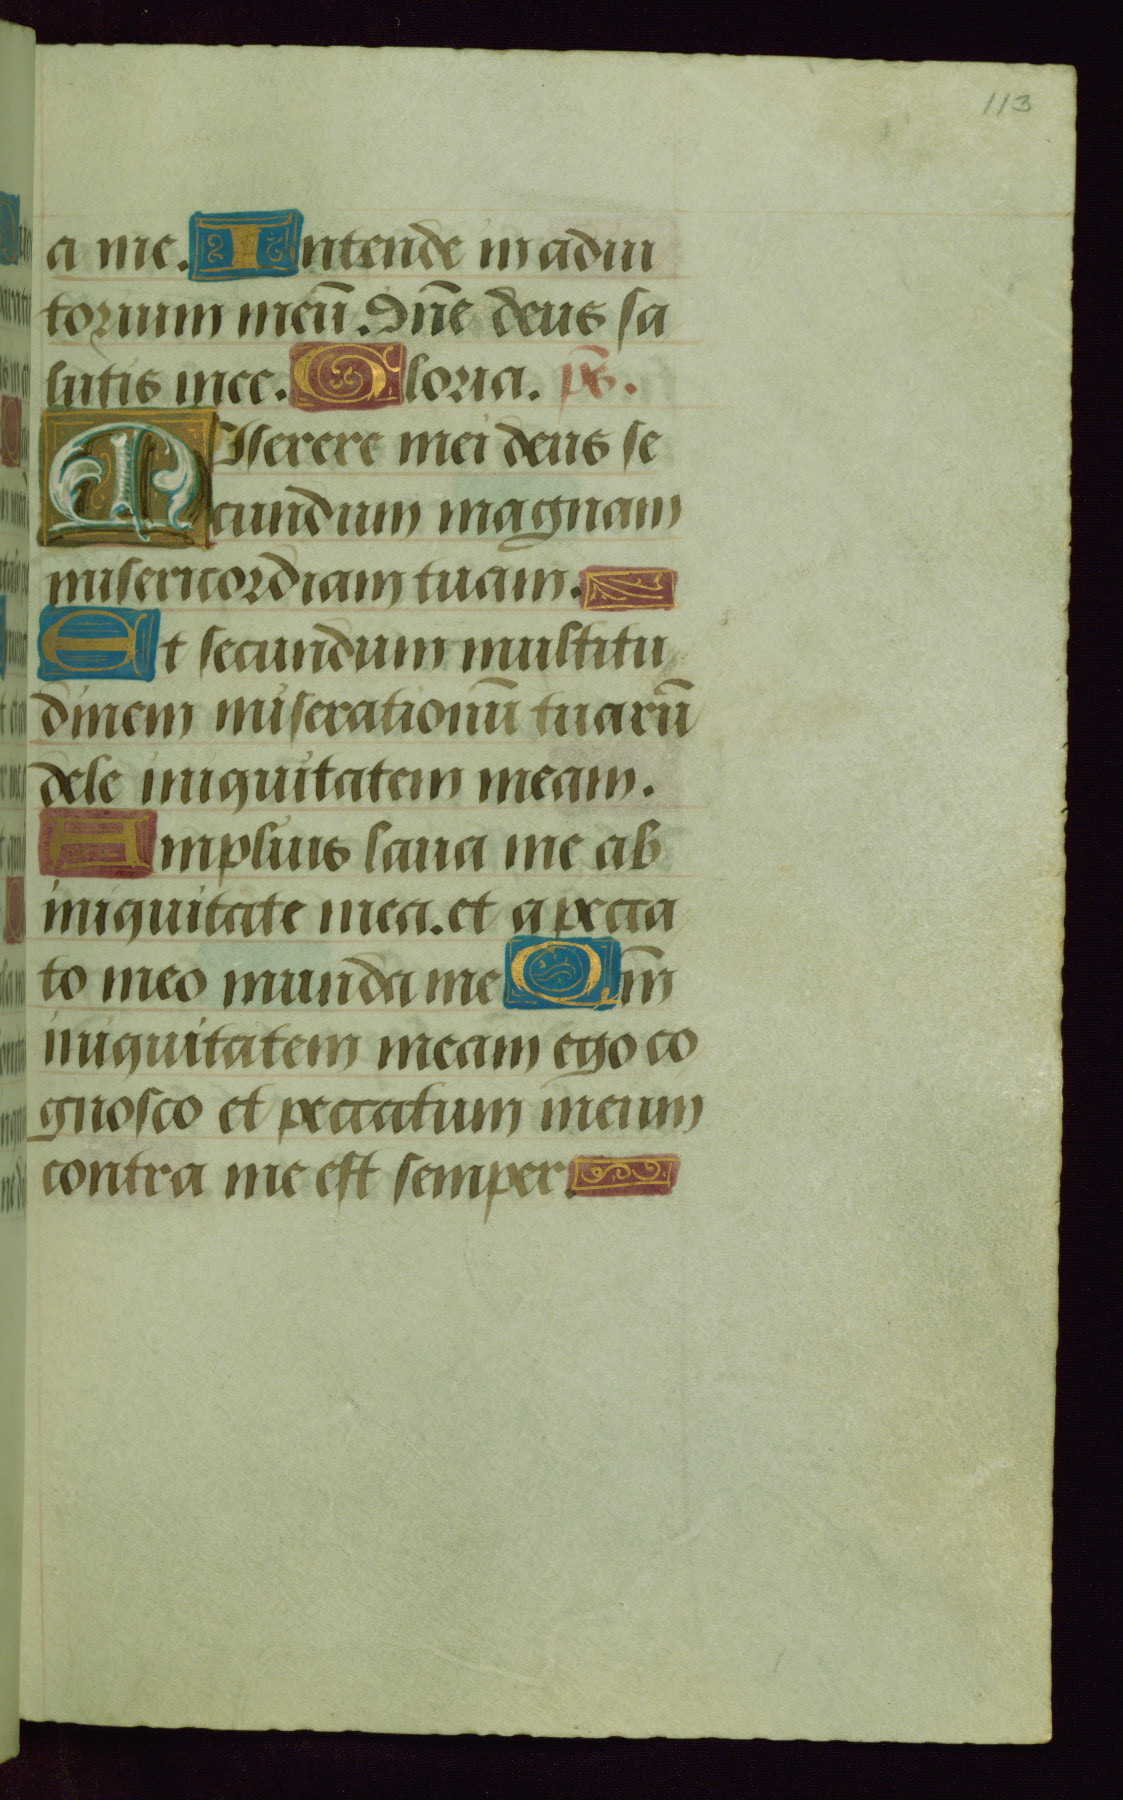 113
a me. Intende in adiu
torium meū. Dn̄e deus sa
lutis mee. Gloria. ps̄.
MIserere mei deus se
cundum magnam
misericordiam tuam.
Et secundum multitu
dinem miserationū tuarū
dele iniquitatem meam.
Amplius laua me ab
iniquitate mea. et a pecca
to meo munda me Qm̄
iniquitatem meam ego co
gnosco et peccatum meum
contra me est semper.